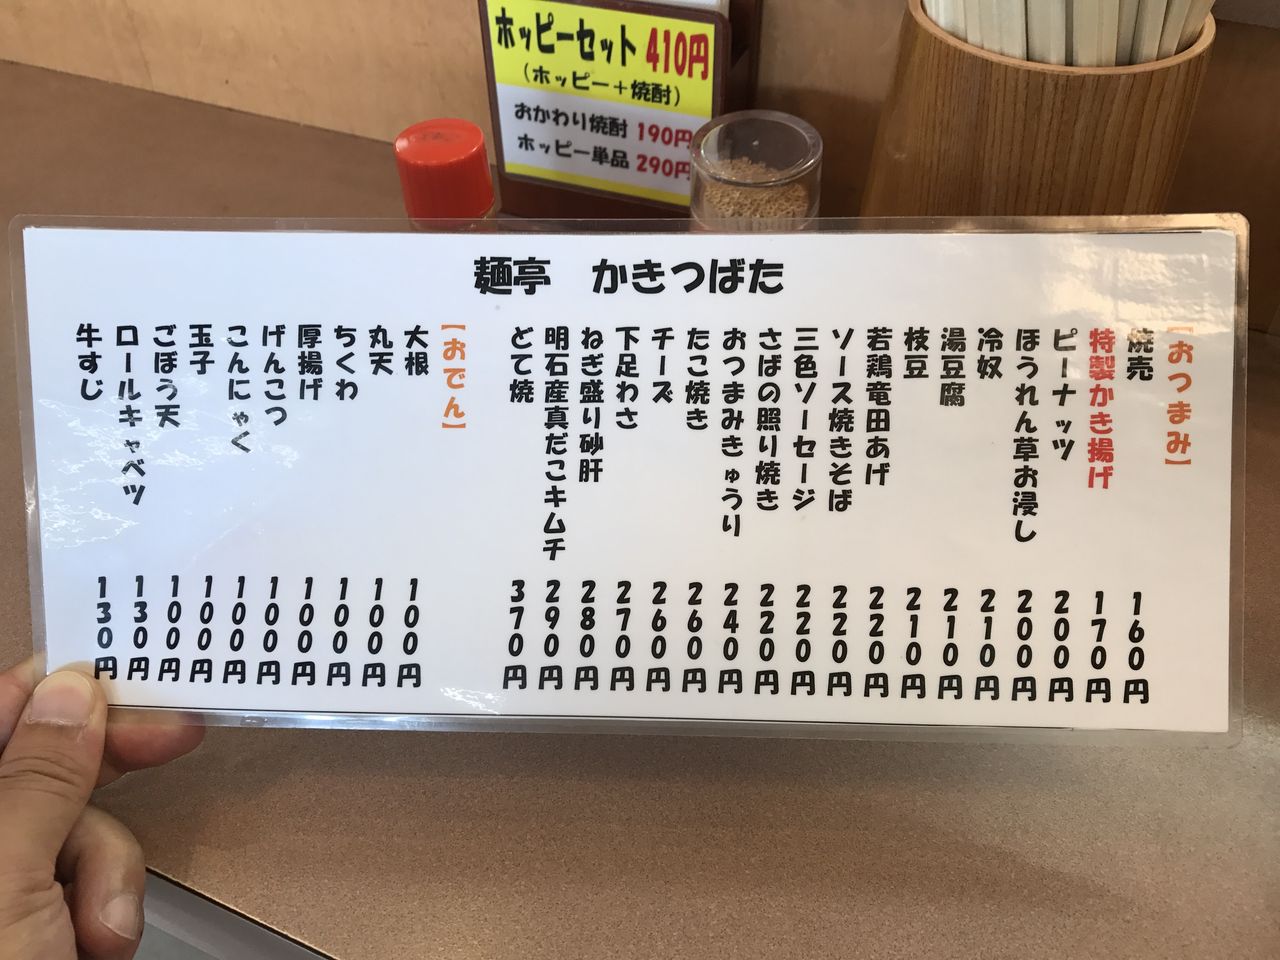 ホッピーセット 410円
（ホッピー＋焼酎）
おかわり焼酎 190円
ホッピー単品 290円
麺亭 かきつばた
【おつまみ】
焼売 160円
特製かき揚げ 170円
ピーナッツ 200円
ほうれん草お浸し 200円
冷奴 210円
湯豆腐 210円
枝豆 210円
若鶏竜田あげ 220円
ソース焼きそば 220円
三色ソーセージ 220円
さばの照り焼き 220円
おつまみきゅうり 240円
たこ焼き 260円
チーズ 260円
下足わさ 270円
ねぎ盛り砂肝 280円
明石産真だこキムチ 290円
どて焼 370円
【おでん】
大根 100円
丸天 100円
ちくわ 100円
厚揚げ 100円
げんこつ 100円
こんにゃく 100円
玉子 100円
ごぼう天 100円
ロールキャベツ 130円
牛すじ 130円